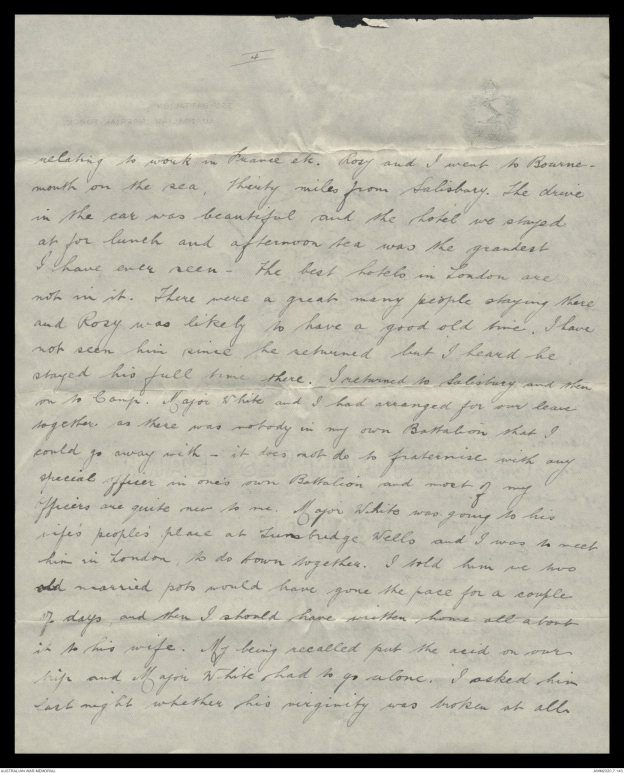 4
relating to work in France etc. Rosy and I went to Bourne-
mouth on the sea, thirty miles from Salisbury. The drive
in the car was beautiful and the hotel we stayed
at for lunch and afternoon tea was the grandest
I have ever seen - The best hotels in London are
not in it. There were a great many people staying there
and Rosy was likely to have a good old time. I have
not seen him since he returned but I heard he
stayed his full time there. I returned to Salisbury and then
on to Camp. Major White and I had arranged for our leave
together as there was nobody in my own Battalion that I
could go away with - it does not do to fraternise with any
special officer in one's own Battalion and most of my
officers are quite new to me. Major White was going to his
wife's people's place at Tunbridge Wells and I was to meet
him in London, to do town together. I told him we two
old married pots would have gone the pace for a couple
of days and then I should have written home all about
it to his wife. My being recalled put the acid on our
trip and Major White had to go alone. I asked him
last night whether his virginity was broken at all
AUSTRALIAN WAR MEMORIAL